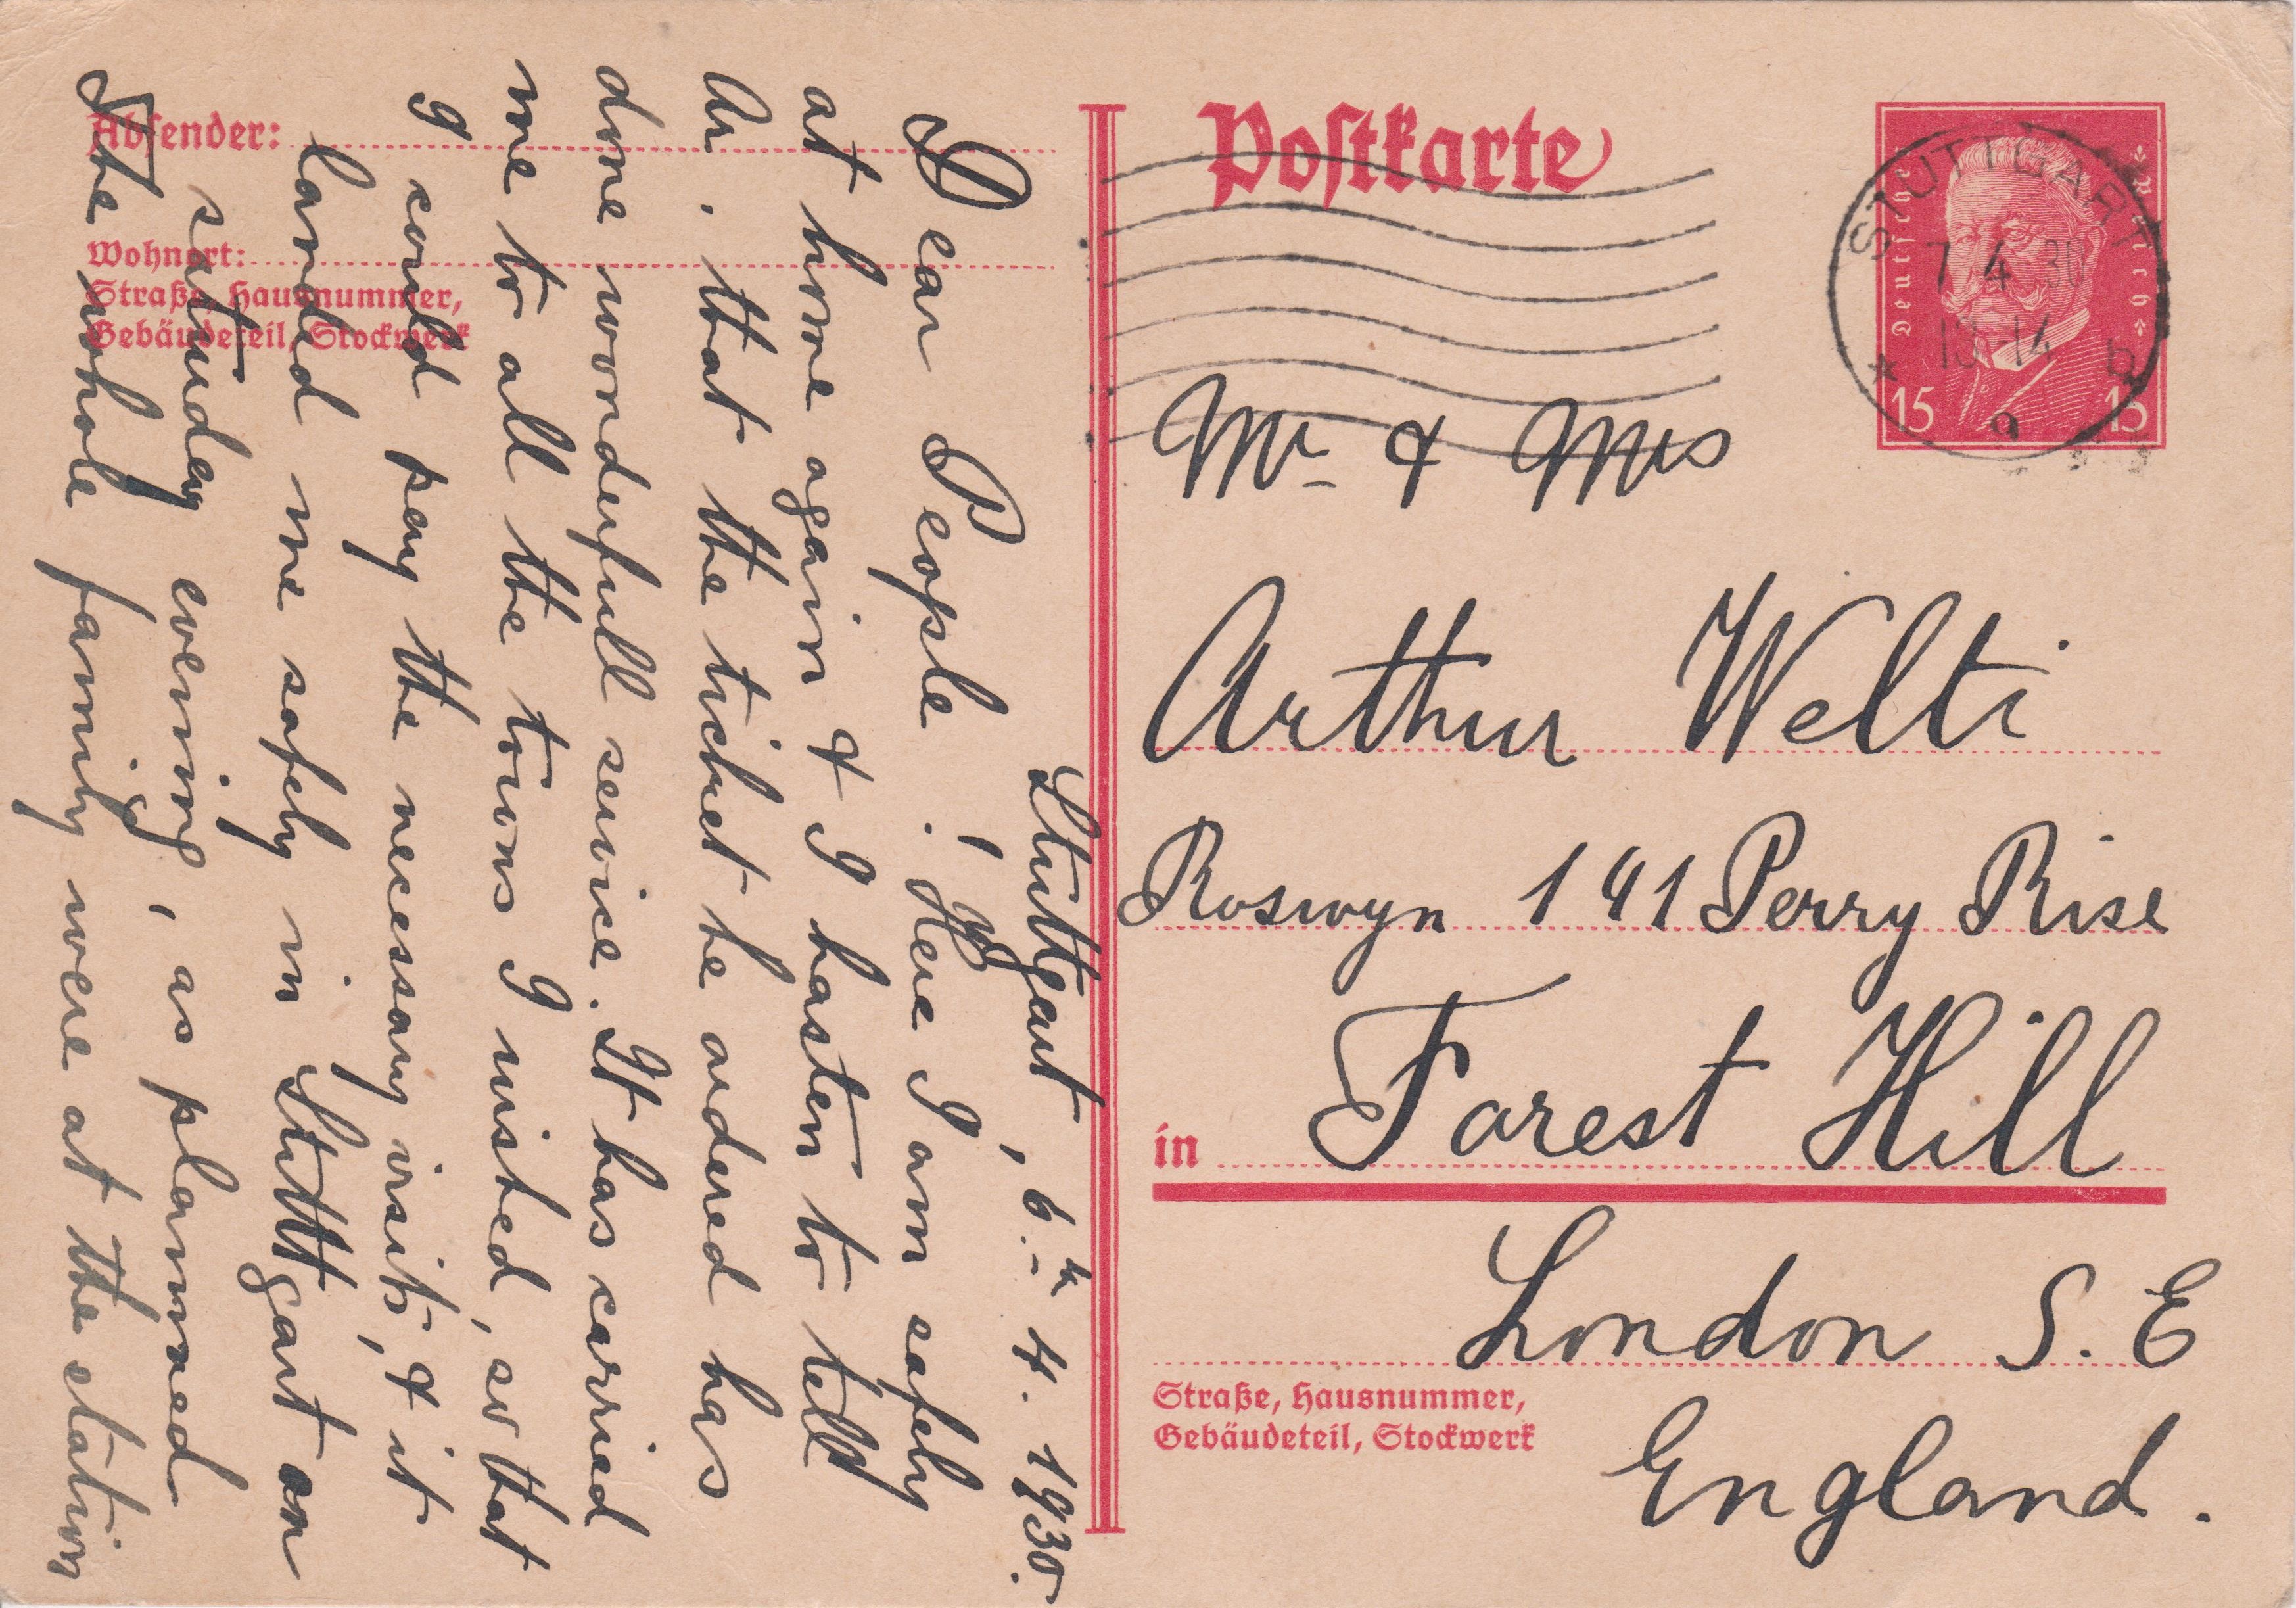 Absender:
Wohnort:
Straße, Hausnummer,
Gebäudeteil, Stockwerk
Stuttgart, 6.th 4. 1930.
Dear People! Here I am safely
at home again & I hasten to tell
that the ticket he ordered has
done wonderfull service. It has carried
me to all the towns I wished, so that
I could pay the necessary visits, & it
landed me safely in Stuttgart on
saturday evening, as planned
The whole family were at the station
Postkarte
Deutsches Reich
15 15
STUTTGART
7 4 30
13-14
b
a
Mr & Mrs
Arthur Welti
Roswyn 141 Perry Rise
in Forest Hill
London S. E
Straße, Hausnummer,
Gebäudeteil, Stockwerk
England.